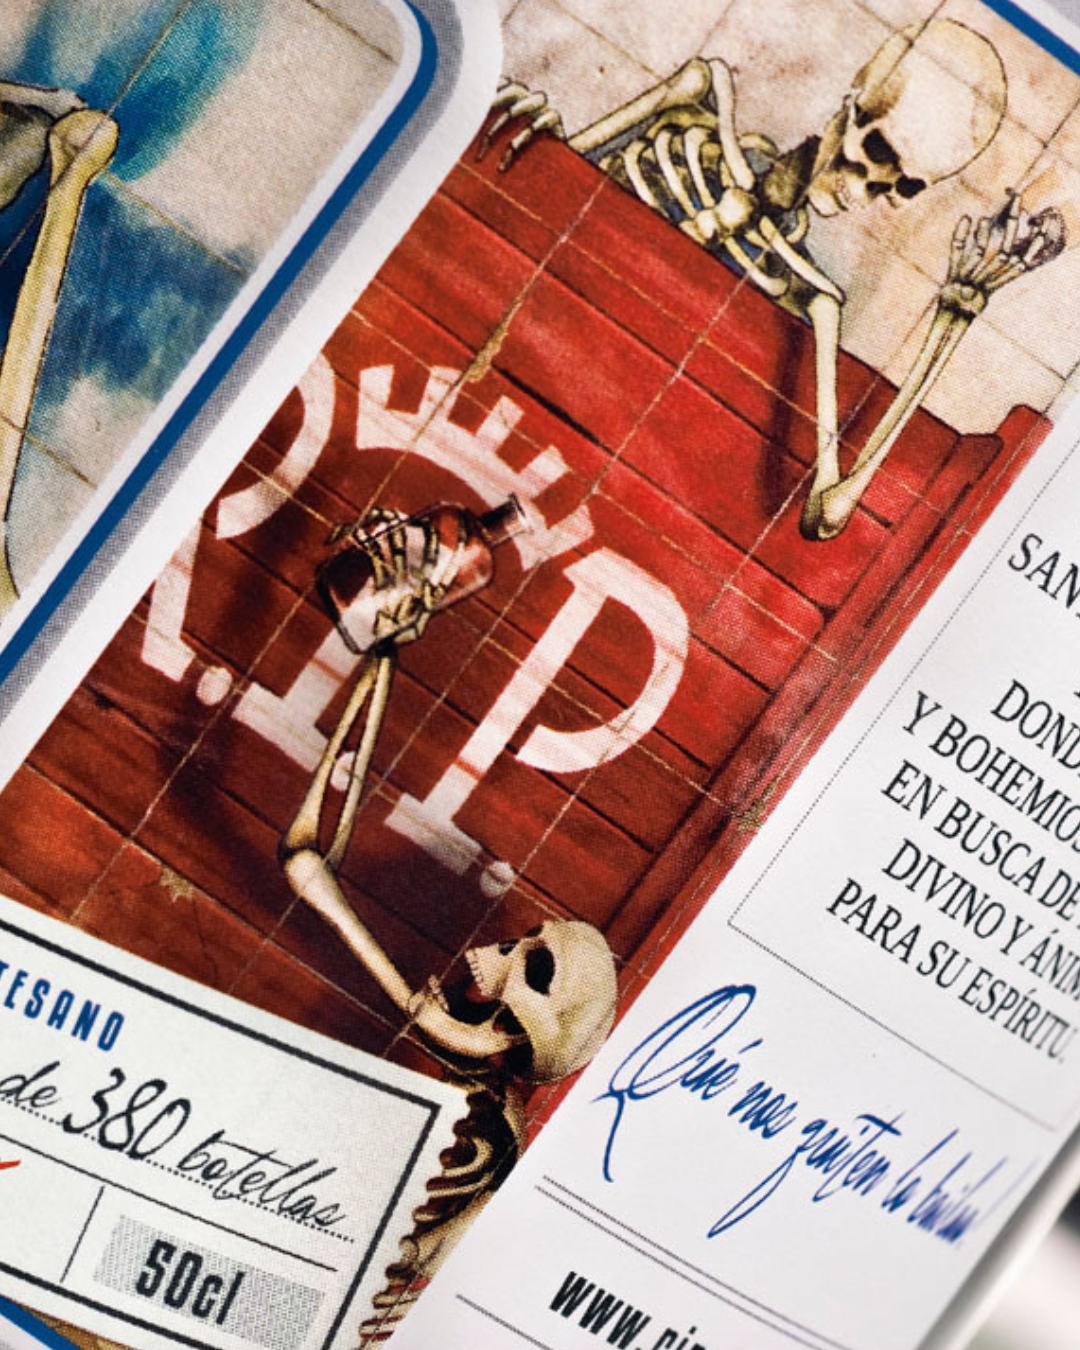 R.I.P.
TESANO
de 380 botellas
50cl
SAN
DOND
Y BOHEMIOS
EN BUSCA DE
DIVINO Y ÁNIM
PARA SU ESPÍRITU.
Qué nos quiten lo bailao
www.rip